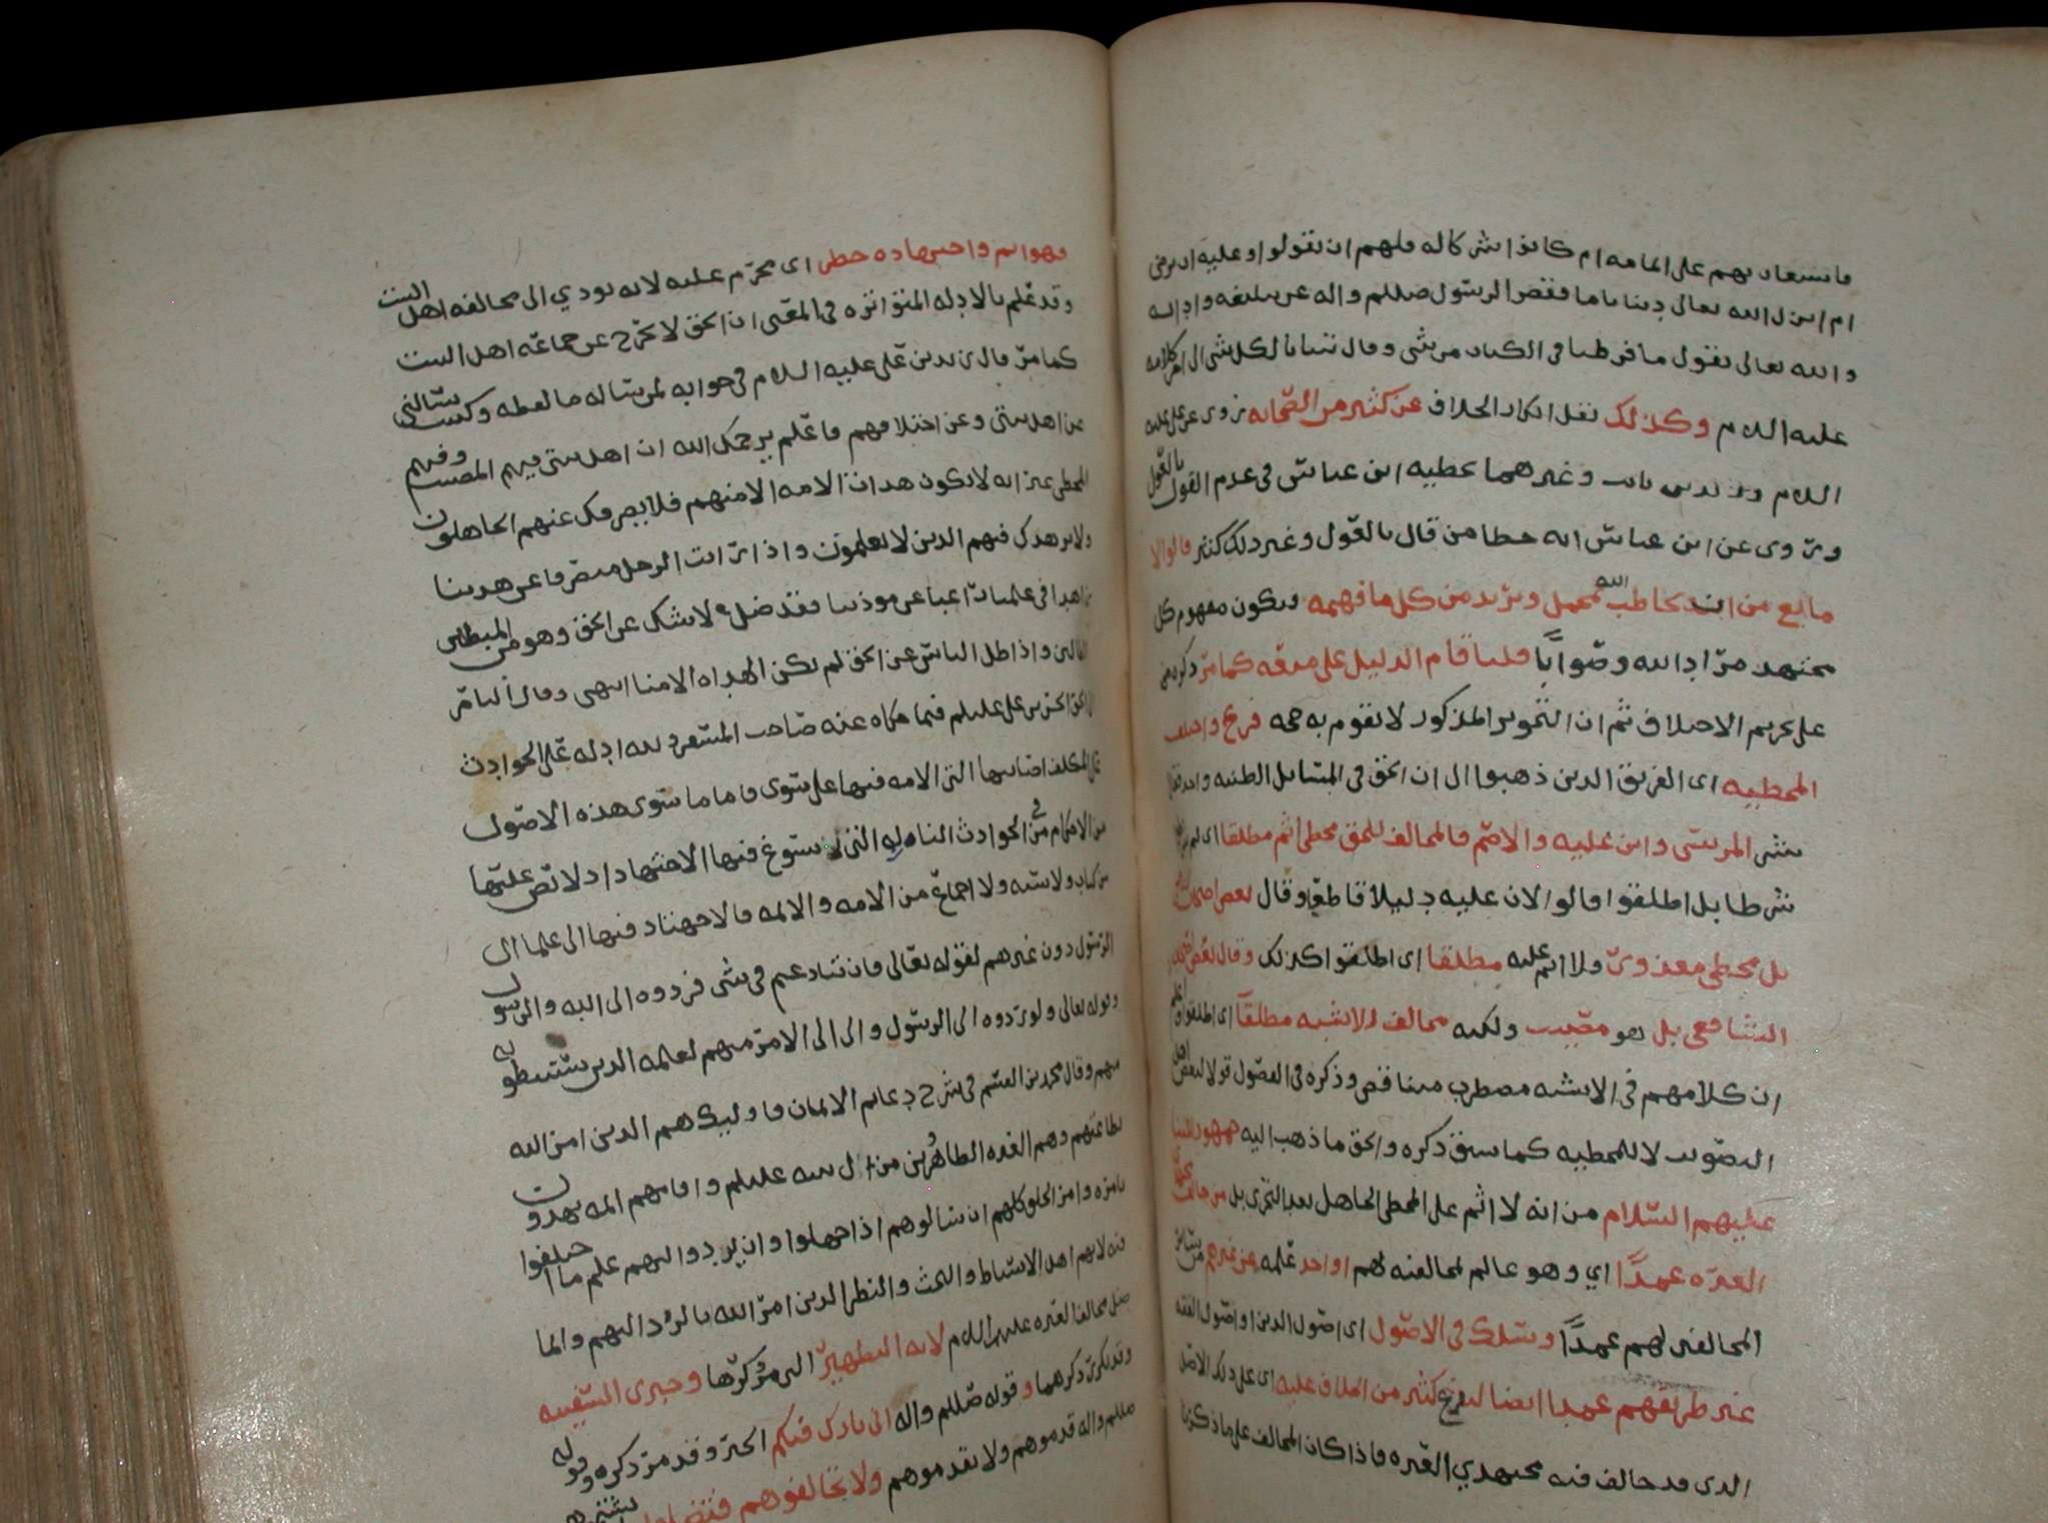 فاستعان بهم على اتمامه ام كانوا شركا له فلهم ان يقولوا وعليه ان يرضى
ام انزل الله تعالى دينا تاما فقصر الرسول صللم واله عن تبليغه واداله
والله تعالى يقول ما فرطنا في الكتاب من شي وقال تبيانا لكل شي الى اخر كلامه
عليه اللام وكذلك نقل انكار الخلاف عن كثير من الصحابه روى عن علي عليه
اللام وزيد بن ثابت وغيرهما تخطيه ابن عباس في عدم القول بالعول
وروى عن ابن عباس انه خطا من قال بالعول وغير ذلك كثير قالوا لا
مانع من ان يخاطب الله بمجمل ويريد من كل ما فهمه ويكون مفهوم كل
مجتهد مراد الله وصوابا قلنا قام الدليل على منعه كما مر ذكره
على تحريم الاختلاف ثم ان التجويز المذكور لا تقوم به حجه فرع واختلف
المخطيه اى الفريق الذين ذهبوا الى ان الحق في المسايل الظنيه واحد فقال
بشر المريسي وابن عليه والاصم فالمخالف للحق مخطي اثم مطلقا اى لم
شرطا بل اطلقوا قالوا لان عليه دليلا قاطعا وقال بعض اصحاب
بل مخطي معذور ولا اثم عليه مطلقا اى اطلقوا كذلك وقال بعض اصحاب
الشافعي بل هو مصيب ولكنه مخالف للاشبه مطلقا اى اطلقوا واعلم
ان كلامهم في الاشبه مضطرب متناقض وذكره في الفصول قولا لبعض اهل
التصويب لا للمخطيه كما سبق ذكره والحق ما ذهب اليه جمهور ائمتنا
عليهم السلام من انه لا اثم على المخطي الجاهل بعد التحرى بل من خالف
العتره عمدا اي وهو عالم لمخالفته لهم او اخذ علمه من غيرهم من سائر
المخالفين لهم عمدا وسلك في الاصول اى اصول الدين او اصول الفقه
غير طريقهم عمدا ايضا لتفرع كثير من الخلاف عليه اى على ذلك الاصل
الذى قد خالف فيه مجتهدي العتره فاذا كان المخالف على ما ذكرنا
فهو اثم واجتهاده حظر اى محرم عليه لانه يودي الى مخالفه اهل البيت
وقد علم بالادله المتواتره في المعنى ان الحق لا يخرج عن جماعه اهل البيت
كما مر قال زيد بن علي عليه اللام في جوابه لمن ساله ما لفظه وكتبت تسالني
عن اهل بيتي وعن اختلافهم فاعلم يرحمك الله ان اهل بيتي فيهم المصيب وفيهم
المخطي غير انه لا تكون هداة الامه الا منهم فلا يصرفك عنهم الجاهلون
ولا يزهدك فيهم الذين لا يعلمون واذا رايت الرجل منصرفا عن هدينا
زاهدا في علمنا راغبا عن مودتنا فقد ضل لا شك عن الحق وهو من المبطلين
الضالين واذا ضل الناس عن الحق لم تكن الهداه الا منا انتهى وقال الناصر
للحق الحسن بن علي عليلم فيما حكاه عنه صاحب المسفر لله ادله على الحوادث
على المكلف اصابتها التي الامه فيها على سوى فاما ما سوى هذه الاصول
من الاحكام في الحوادث النازله التي يسوغ فيها الاجتهاد اذ لا نص عليها
من كتاب ولا سنه ولا اجماع من الامه والائمه فالاجتهاد فيها الى علما ال
الرسول دون غيرهم لقوله تعالى فان تنازعتم في شي فردوه الى الله والرسول
وقوله تعالى ولو ردوه الى الرسول والى اولى الامر منهم لعلمه الذين يستنبطونه
منهم وقال محمد بن القسم في شرح دعايم الايمان فاوليك هم الذين امر الله
بطاعتهم وهم العتره الطاهرين من ال نبيه عليلم واقامهم ائمه يهدون
بامره وامر الخلق كلهم ان يسالوهم اذا جهلوا وان يردوا اليهم علم ما اختلفوا
فيه لانهم اهل الاستنباط والبحث والنظر الذين امر الله بالرد اليهم وانما
ضل مخالف العتره عليهم اللام لايه التطهير التي مر ذكرها وخبرى السفينه
وقد تكرر ذكرهما وقوله صللم واله اني تارك فيكم الخبر وقد مر ذكره وقوله
صللم واله قدموهم ولا تقدموهم ولا تخالفوهم فتضلوا